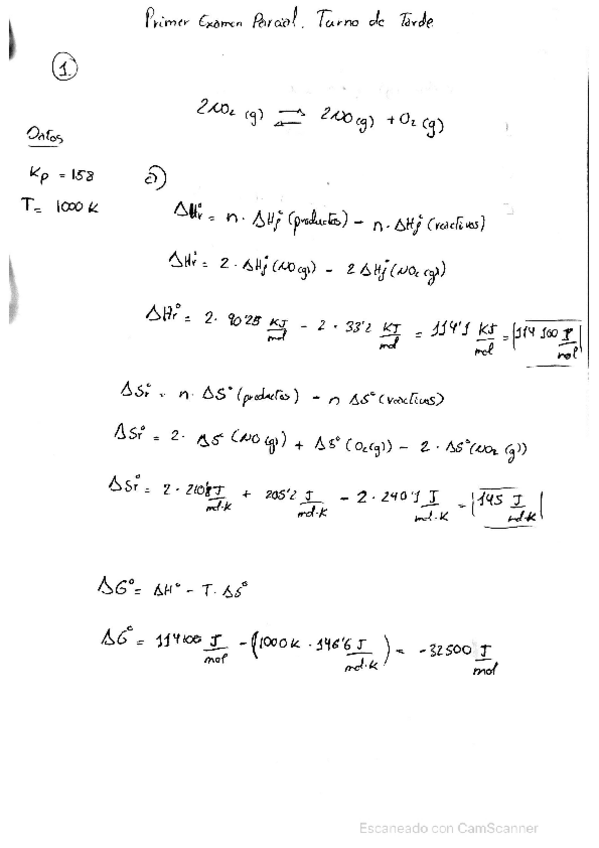 Primer Examen Parcial. Turno de Tarde
1.
2NO₂ (g) ⇄ 2NO(g) + O₂ (g)
Datos
Kp = 158
T = 1000 K
a)
ΔHr° = n · ΔHf° (productos) - n · ΔHf° (reactivos)
ΔHr° = 2 · ΔHf° (NO(g)) - 2 ΔHf° (NO₂ (g))
ΔHr° = 2 · 90'25 KJ/mol - 2 · 33'2 KJ/mol = 114'1 KJ/mol = 114 100 J/mol
ΔSr° = n · ΔS° (productos) - n ΔS° (reactivos)
ΔSr° = 2 · ΔS° (NO (g)) + ΔS° (O₂(g)) - 2 · ΔS° (NO₂ (g))
ΔSr° = 2 · 210'8 J/mol·K + 205'2 J/mol·K - 2 · 240'1 J/mol·K = 145 J/mol·K
ΔG° = ΔH° - T · ΔS°
ΔG° = 114100 J/mol - (1000 K · 146'6 J/mol·K) = -32500 J/mol
Escaneado con CamScanner